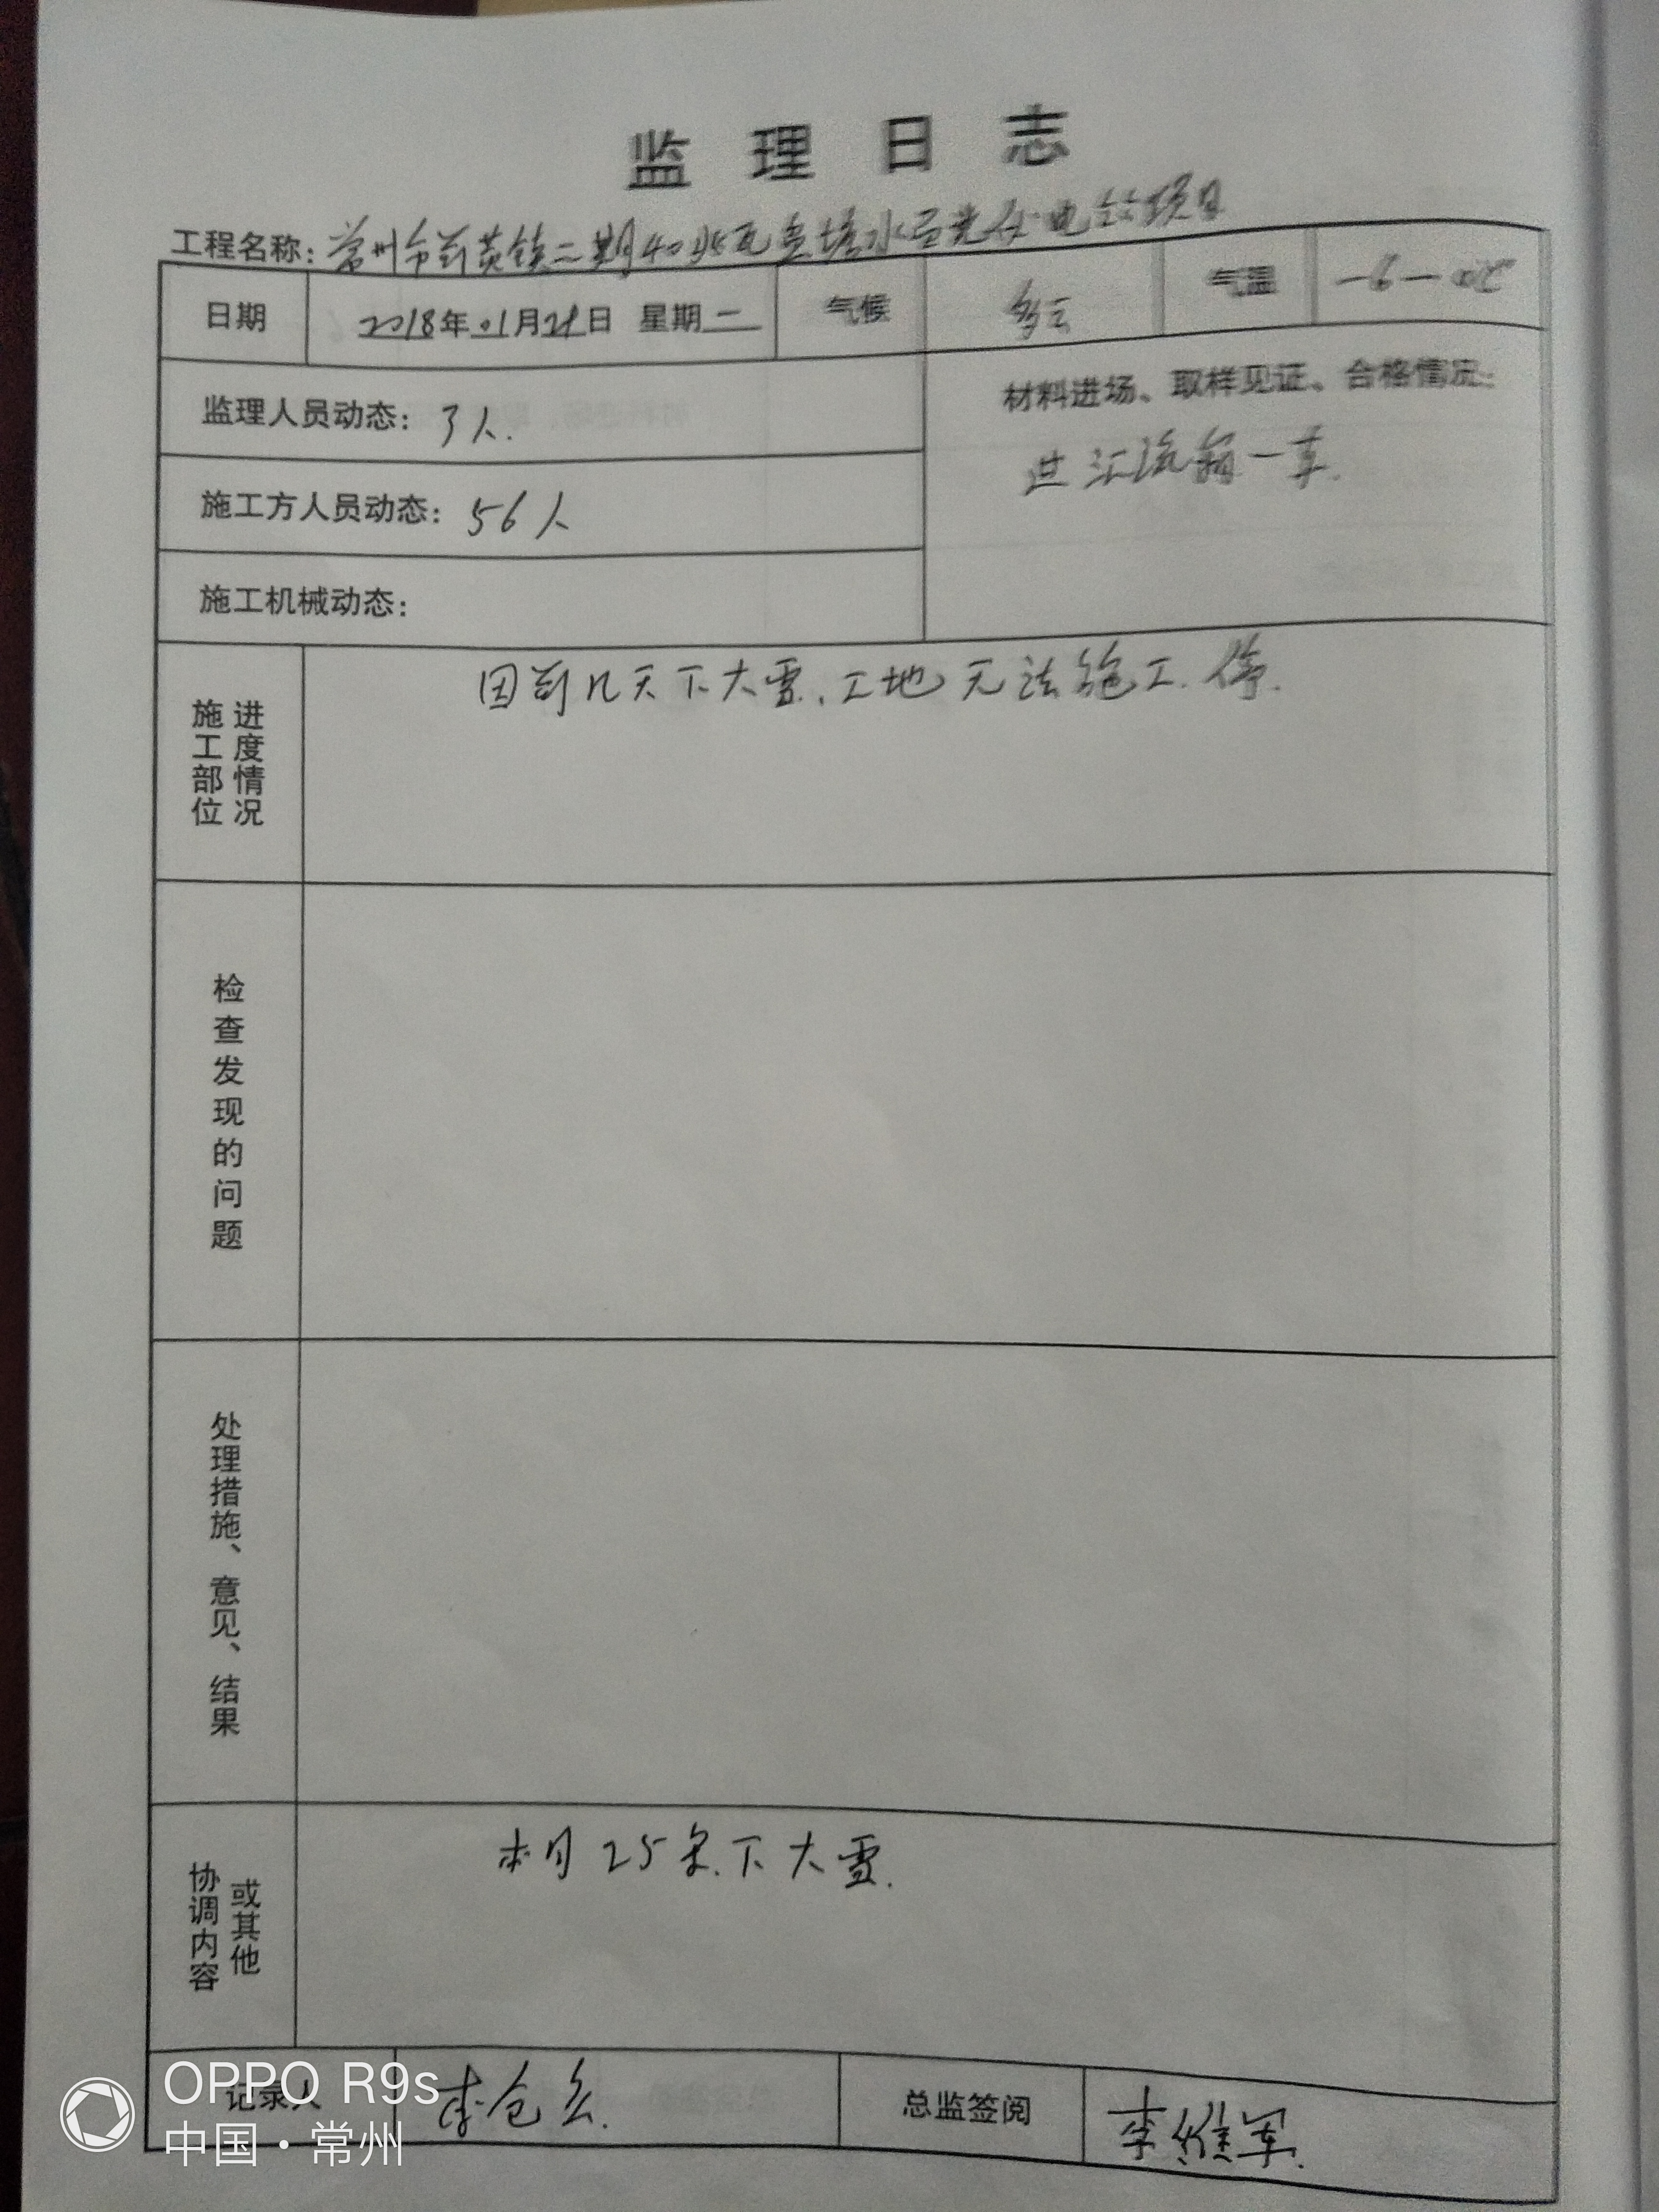 监理日志
工程名称：常州市 镇二期40兆瓦 塘水面光伏电站项目
日期 2018年01月29日 星期一 气候 多云 气温 -6—0℃
监理人员动态：3人.
材料进场、取样见证、合格情况：
进汇流箱一车.
施工方人员动态：56人
施工机械动态：
施工部位 进度情况
因前几天下大雪.工地无法施工.停.
检查发现的问题
处理措施、意见、结果
协调内容 或其他
本月25号.下大雪.
记录人 李仓 总监签阅 李维军.
OPPO R9s
中国·常州